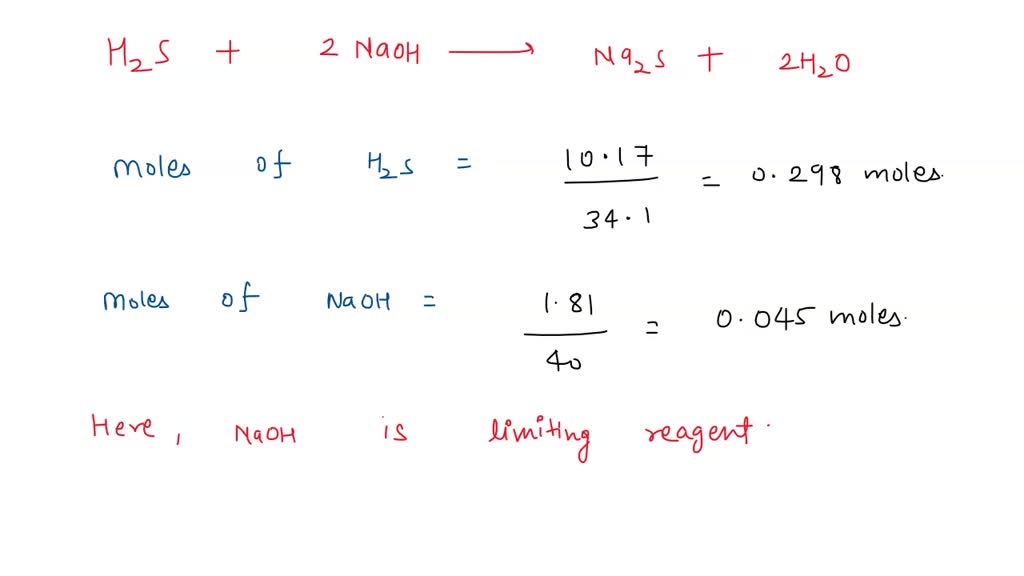 H₂S + 2 NaOH ⟶ Na₂S + 2H₂O
moles of H₂S = 10.17 / 34.1 = 0.298 moles.
moles of NaOH = 1.81 / 40 = 0.045 moles.
Here, NaOH is limiting reagent.